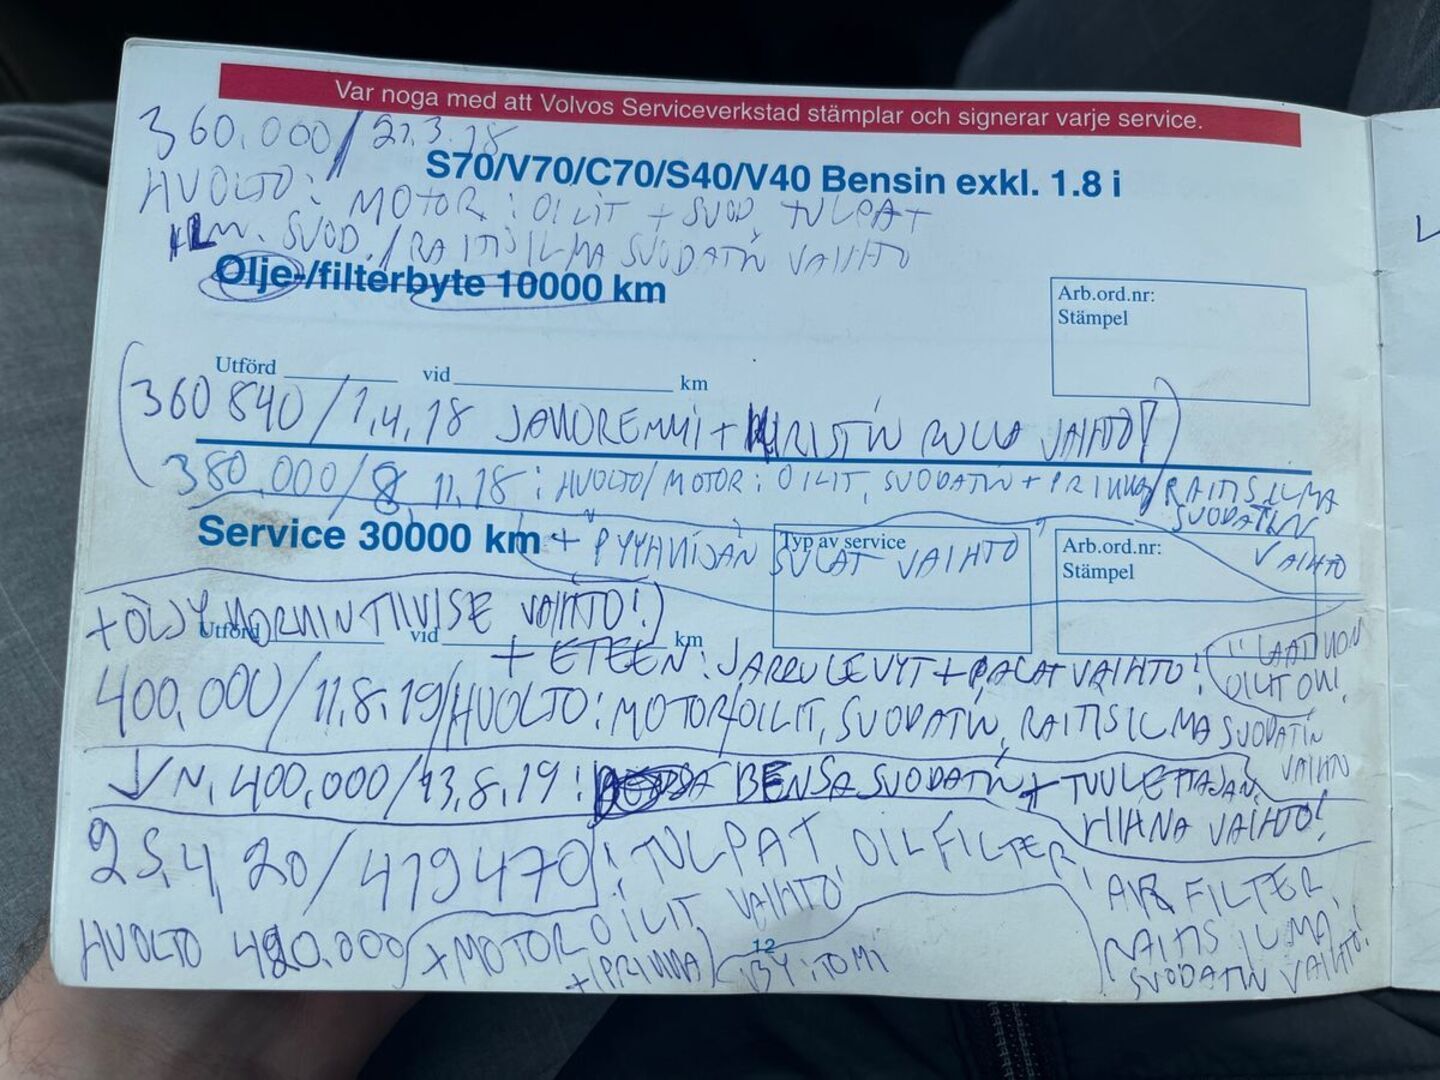 Var noga med att Volvos Serviceverkstad stämplar och signerar varje service.
360.000/21.3.18
S70/V70/C70/S40/V40 Bensin exkl. 1.8 i
HUOLTO: MOTOR: OILIT + SUOD, TULPAT
ILM. SUOD./RAITISILMA SUODATIN VAIHTO
Olje-/filterbyte 10000 km
Arb.ord.nr:
Stämpel
Utförd vid km
360 840/1.4.18 JAKOREMMI + KIRISTIN RULLA VAIHTO!
380.000/8.11.18: HUOLTO/MOTOR: OILIT, SUODATIN + PRIMMA/RAITISILMA
SUODATIN
VAIHTO
Service 30000 km
+ PYYHKIJÄN SULAT VAIHTO
Typ av service
Arb.ord.nr:
Stämpel
+ ÖLJY VAIHTO!)
Utförd vid km
+ ETEEN: JARRULEVYT + PALAT VAIHTO!
(LAADUKON
OILIT ON!
400.000/11.8.19/HUOLTO: MOTOR/OILIT, SUODATIN, RAITISILMA SUODATIN
VAIHTO
N. 400.000/13.8.19: BENSA SUODATIN + TUULETTAJAN
HIHNA VAIHTO!
25.4.20/419470: TULPAT, OILFILTER,
AIR FILTER
RAITIS ILMA
SUODATIN VAIHTO!
HUOLTO 420.000 + MOTOR OILIT VAIHTO!
+ (PRIMMA)
BY: TOMI
12